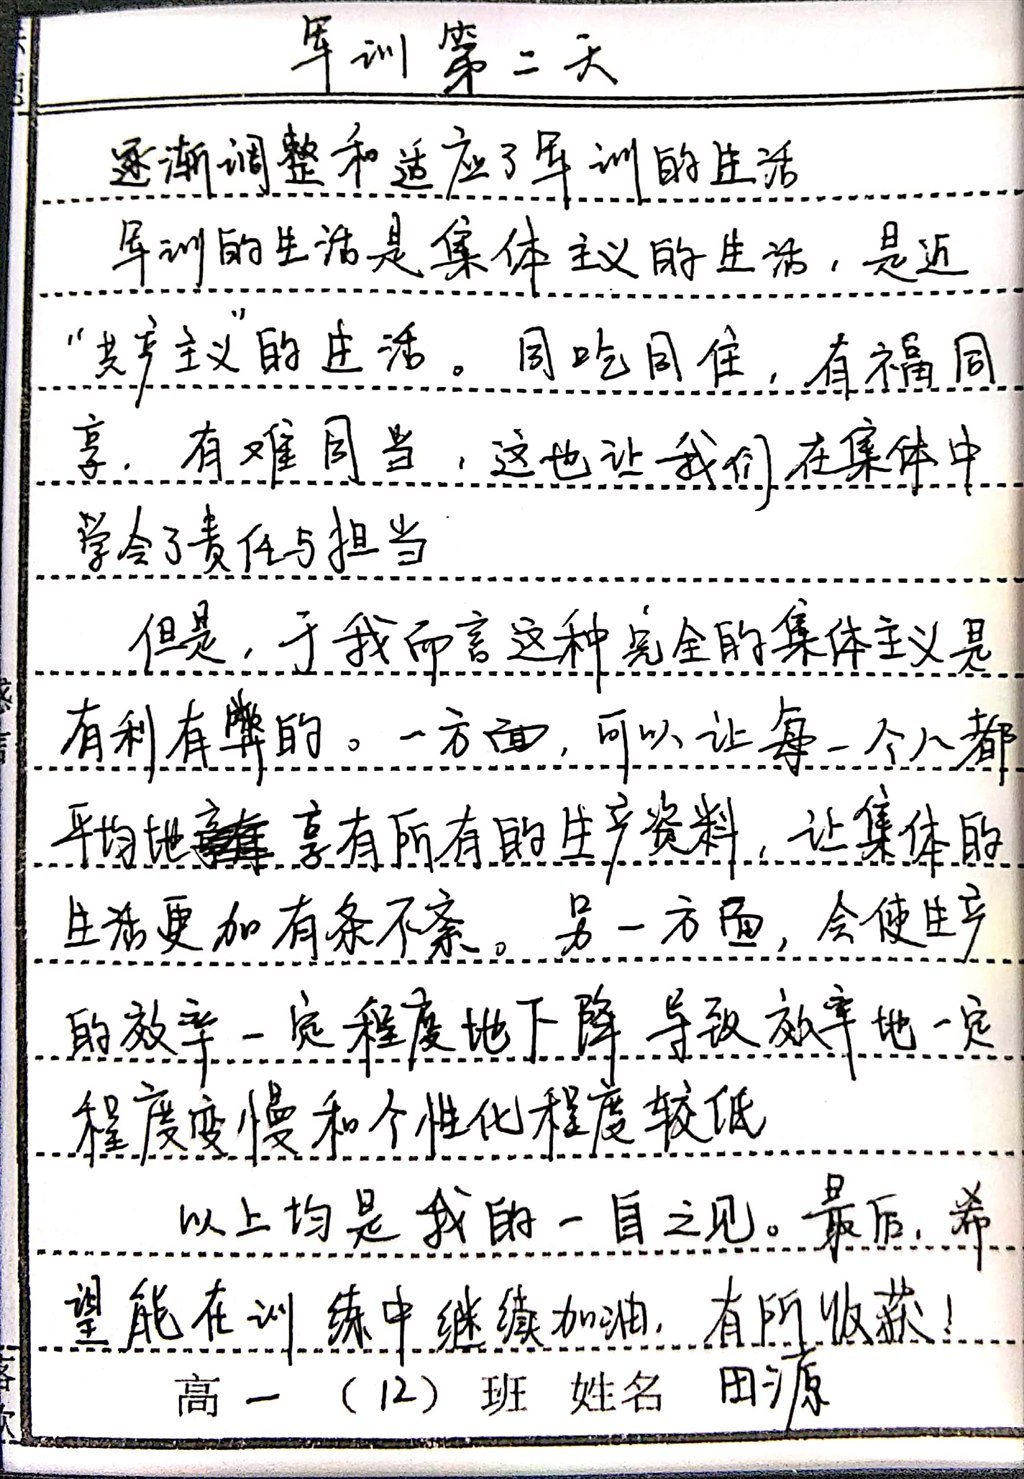 军训第二天
逐渐调整和适应了军训的生活
军训的生活是集体主义的生活，是近
“共产主义”的生活。同吃同住，有福同
享，有难同当，这也让我们在集体中
学会了责任与担当
但是，于我而言这种完全的集体主义是
有利有弊的。一方面，可以让每一个人都
平均地享有所有的生产资料，让集体的
生活更加有条不紊。另一方面，会使生产
的效率一定程度地下降 导致效率地一定
程度变慢和个性化程度较低
以上均是我的一目之见。最后，希
望能在训练中继续加油，有所收获！
高一（12）班 姓名 田源